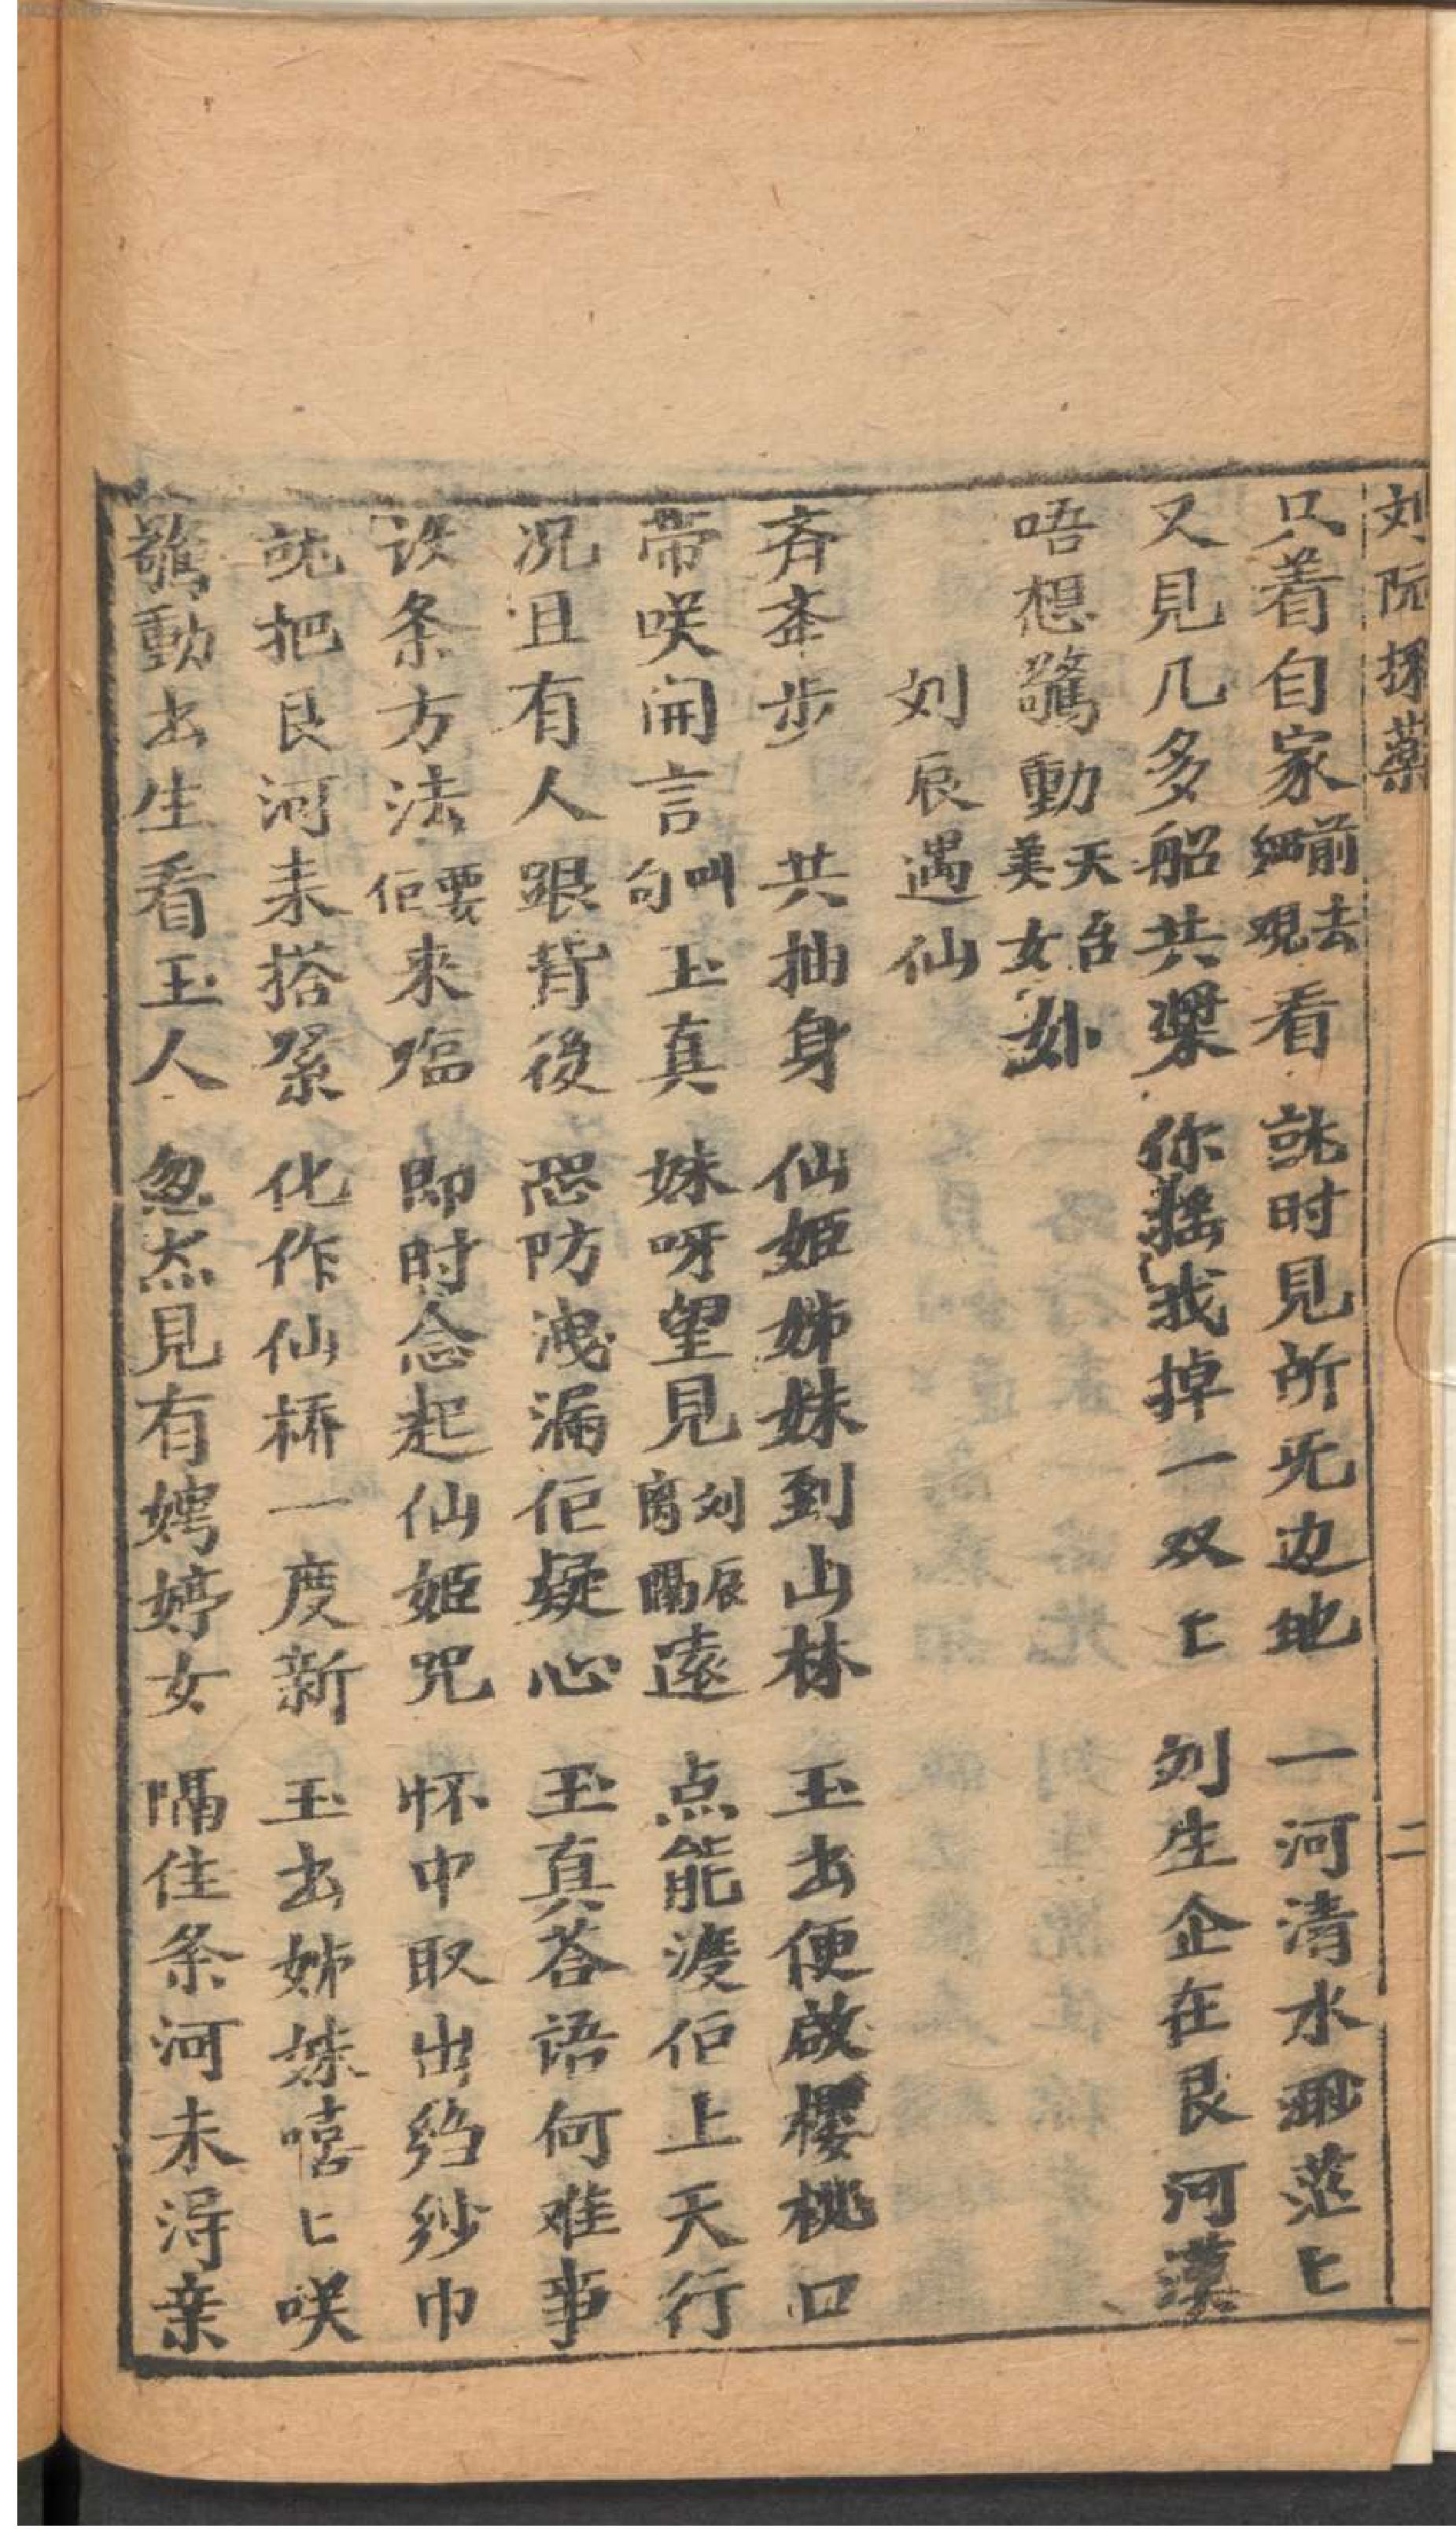 刘阮採藥
二
只着自家前去細观看 就时見所旡边地 一河清水渺茫〻
又見几多船共槳 你摇我掉一双〻 刘生企在良河漢
唔想驚動天台美女𡛟
刘辰遇仙
斉斉步 共抽身 仙姬姊妹到山林 玉出便啟櫻桃口
帶咲開言叫句玉真 妹呀望見刘辰离隔遠 点能渡佢上天行
况且有人跟背後 恐防洩漏佢疑心 玉真荅语何难事
设条方法要佢来臨 即时念起仙姬咒 怀中取出绉纱巾
就把良河来搭緊 化作仙桥一度新 玉出姊妹嘻〻咲
驚動出生看玉人 忽然見有娉婷女 隔住条河未淂亲